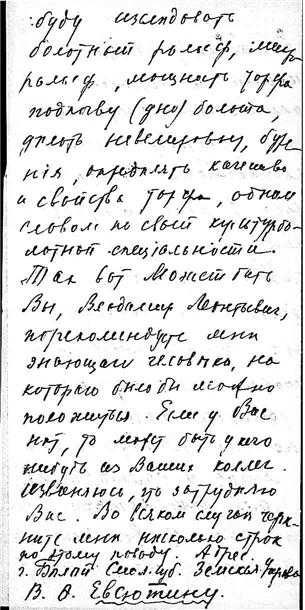 буду изслѣдовать
болотный рельеф,
рельеф, мощность торфа
подпочву (дно) болота,
дѣлать невелировку, буре-
нія, опредѣлять качество
и свойства торфа, одним
словом по своей культурбо-
лотной спеціальности.
Так вот может быть
Вы, Владимир Леонтьевич,
порекомендуете мнѣ
знающаго человѣка, на
котораго было бы можно
положиться. Если у Вас
нѣт, то может быть у кого
нибудь из Ваших коллег.
Извиняюсь, что затрудняю
Вас. Во всяком случаѣ черк-
ните мнѣ нѣсколько строк
по этому поводу. Адрес
г. Бѣлый Смол. губ. Земская Управа
В. Ф. Евсютину.